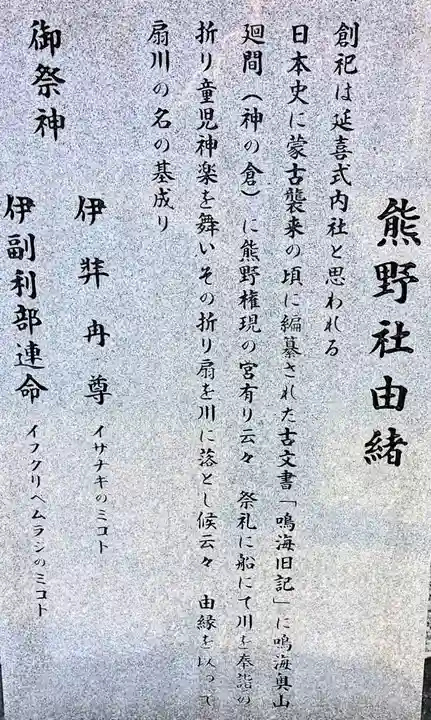 熊野社由緒
創祀は延喜式内社と思われる
日本史に蒙古襲来の頃に編纂された古文書「鳴海旧記」に鳴海奥山
廻間（神の倉）に熊野権現の宮有り云々　祭礼に船にて川を奉詣の
折り童児神楽を舞いその折り扇を川に落とし候云々　由縁を以って
扇川の名の基成り
御祭神
伊弉冉尊 イサナキのミコト
伊副利部連命 イフクリベムラシのミコト